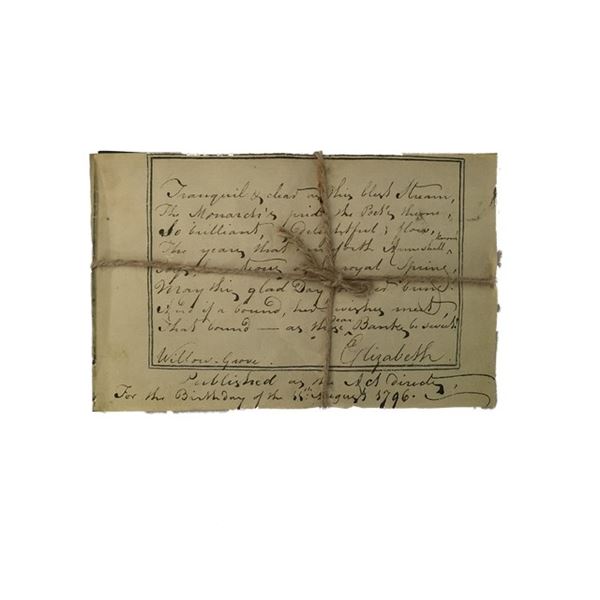 Tranquil & clear as this blest Stream,
The Monarch's pride the Poet's theme,
So brilliant, delightful, & flow,
The years that henceforth Ann shall know
royal Spring,
May this glad Day
And if a bound, her wishes meet,
That bound — as these dear Banks be sweet
Willow-Grove. Elizabeth.
Published as the Act directs,
For the Birthday of the August 1796.